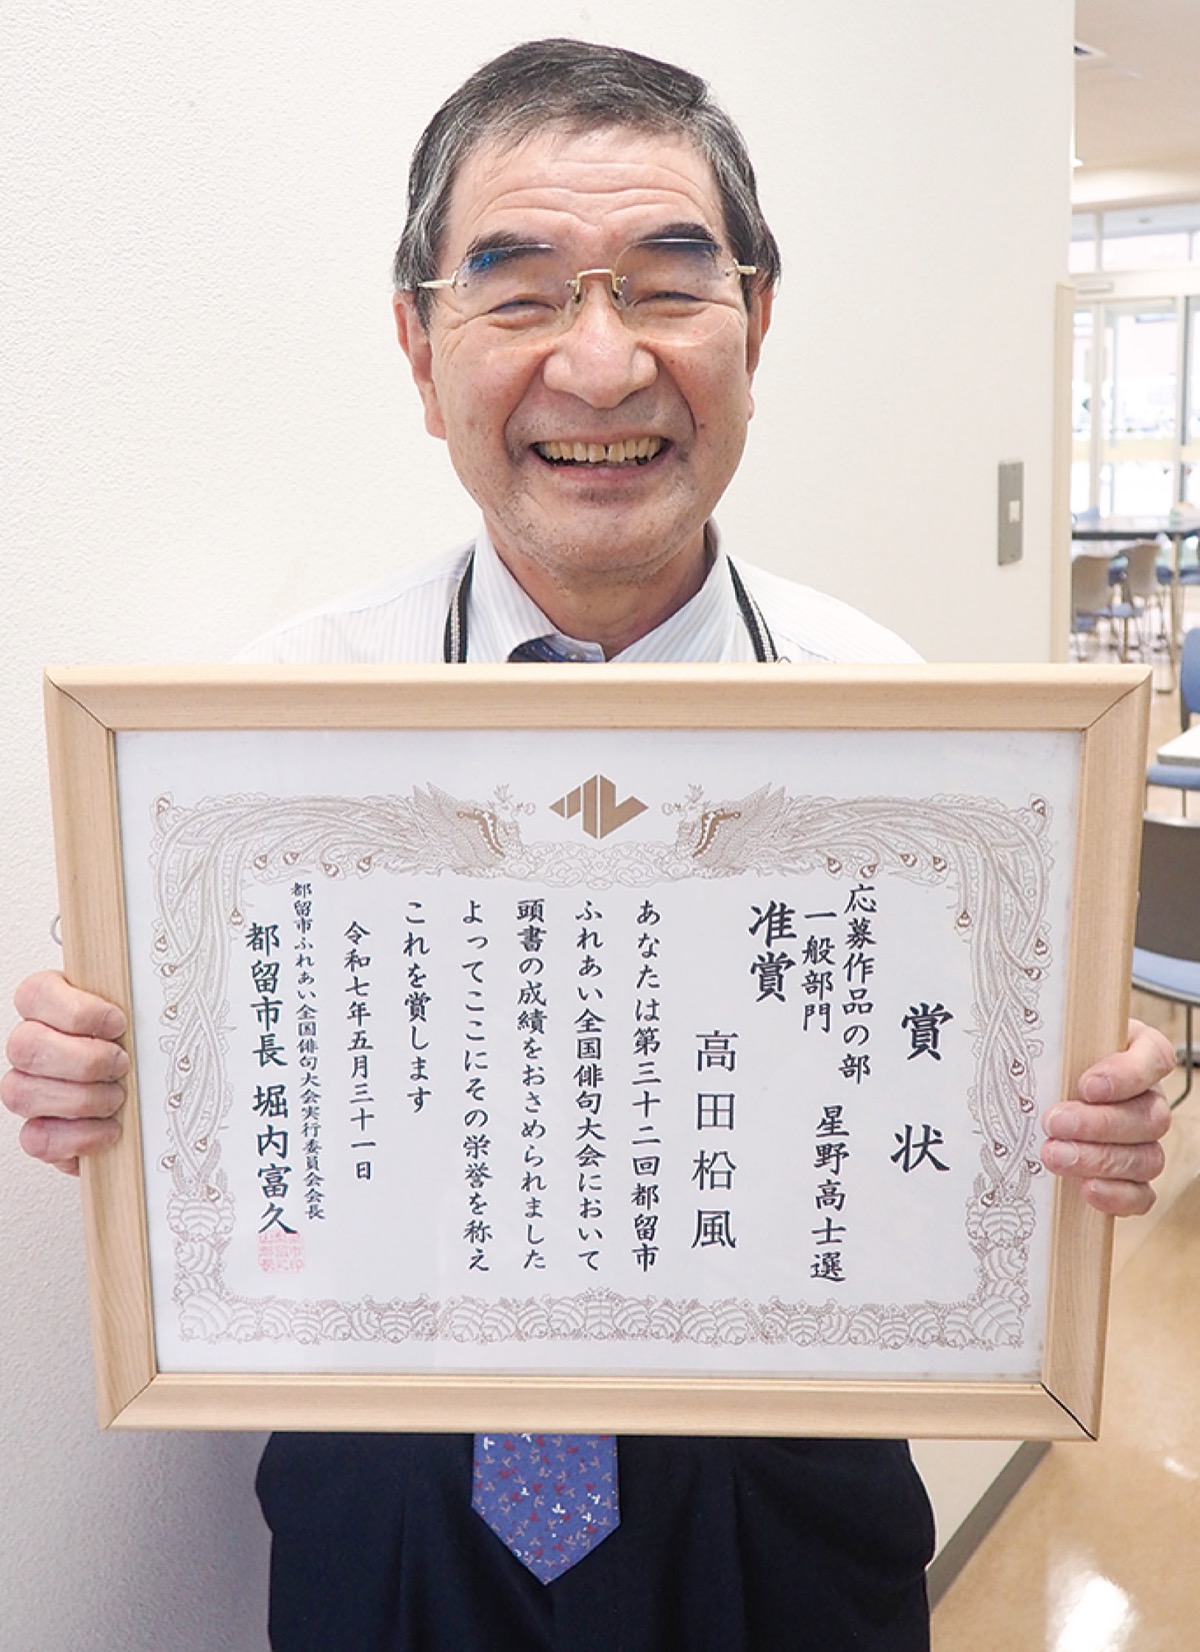 賞状
応募作品の部
一般部門 星野高士選
准賞
高田松風
あなたは第三十二回都留市
ふれあい全国俳句大会において
頭書の成績をおさめられました
よってここにその栄誉を称え
これを賞します
令和七年五月三十一日
都留市ふれあい全国俳句大会実行委員会会長
都留市長 堀内富久